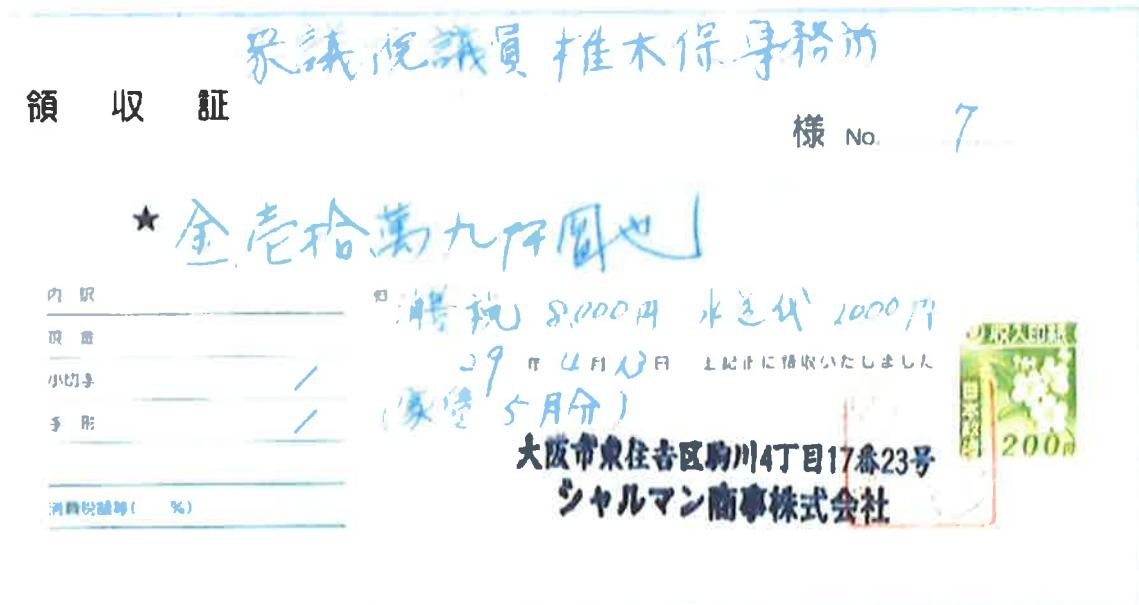 衆議院議員椎木保事務所
領 収 証
様 No. 7
★ 金壱拾萬九仟圓也
内 訳
現 金
小切手 /
手 形 /
消費税額等( %)
但 消費税 8,000円 水道代 1000円
29年 4月 13日 上記正に領収いたしました
(家賃 5月分)
収入印紙
日本政府
200円
大阪市東住吉区駒川4丁目17番23号
シャルマン商事株式会社